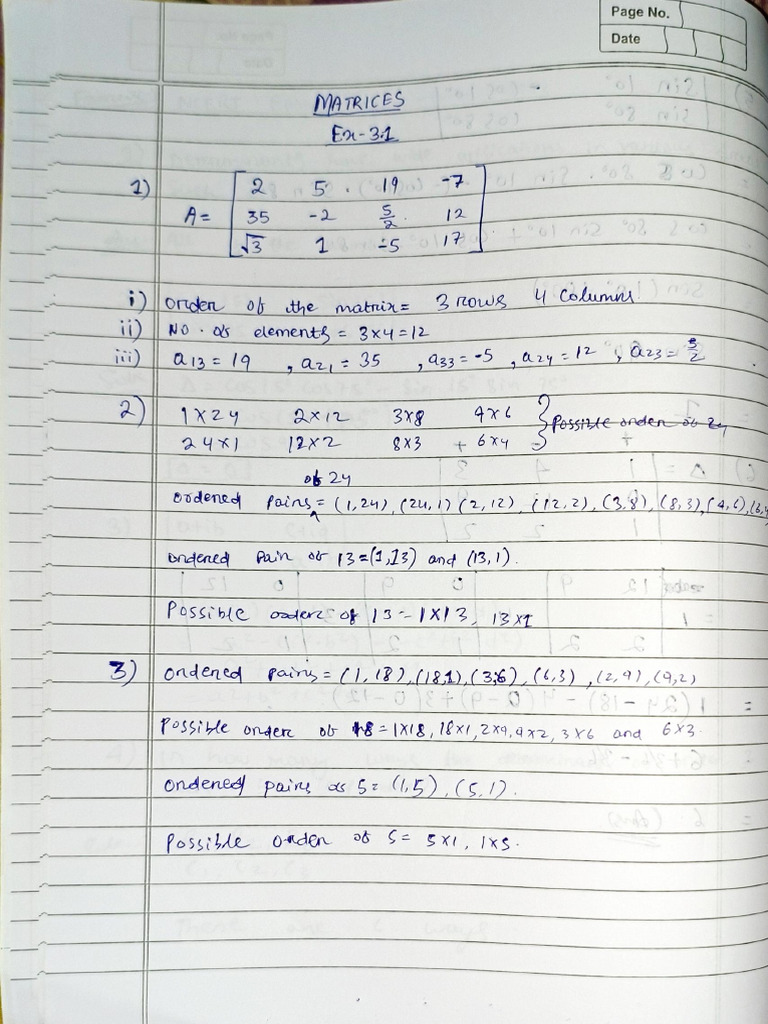 Page No.
Date
MATRICES
Ex-3.1
1) A= [ 2 5 19 -7
35 -2 5/2 12
√3 1 -5 17 ]
i) order of the matrix= 3 rows 4 columns
ii) No. of elements = 3×4=12
iii) a13 = 19 , a21 = 35 , a33 = -5 , a24 = 12 , a23 = 5/2
2) 1×24 2×12 3×8 4×6 } Possible order of 24
24×1 12×2 8×3 + 6×4
of 24
ordered pairs = (1,24), (24,1) (2,12), (12,2), (3,8), (8,3), (4,6), (6,4
ordered pair of 13=(1,13) and (13,1).
Possible order of 13 - 1×13, 13×1
3) ordered pairs = (1,18), (18,1), (3,6), (6,3) , (2,9), (9,2)
Possible order of 18=1×18, 18×1, 2×9, 9×2, 3×6 and 6×3.
ordered pairs of 5= (1,5), (5,1).
Possible order of 5= 5×1, 1×5.